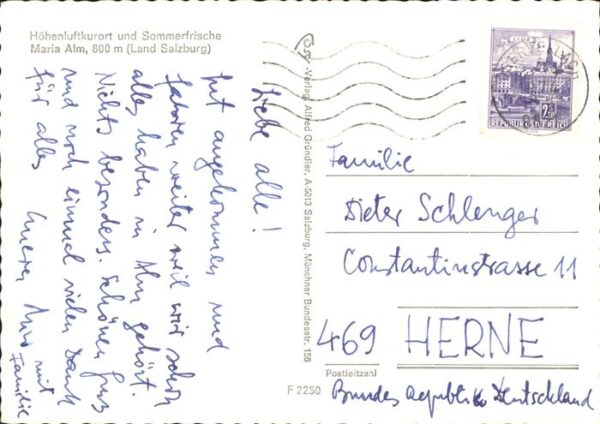 Höhenluftkurort und Sommerfrische
Maria Alm, 800 m (Land Salzburg)
Liebe alle!
gut angekommen und
fahren weiter weil wir schon
alles haben in Alm gehört.
Nichts besonders. Schönen Gruß
und noch einmal vielen Dank
für alles Euere mit
Familie
C Verlag Alfred Gründler, A-5013 Salzburg, Münchner Bundesstr. 156
REPUBLIK ÖSTERREICH
Familie
Dieter Schlenger
Constantinstrasse 11
469 HERNE
Postleitzahl
F 2250
Bundesrepublik Deutschland